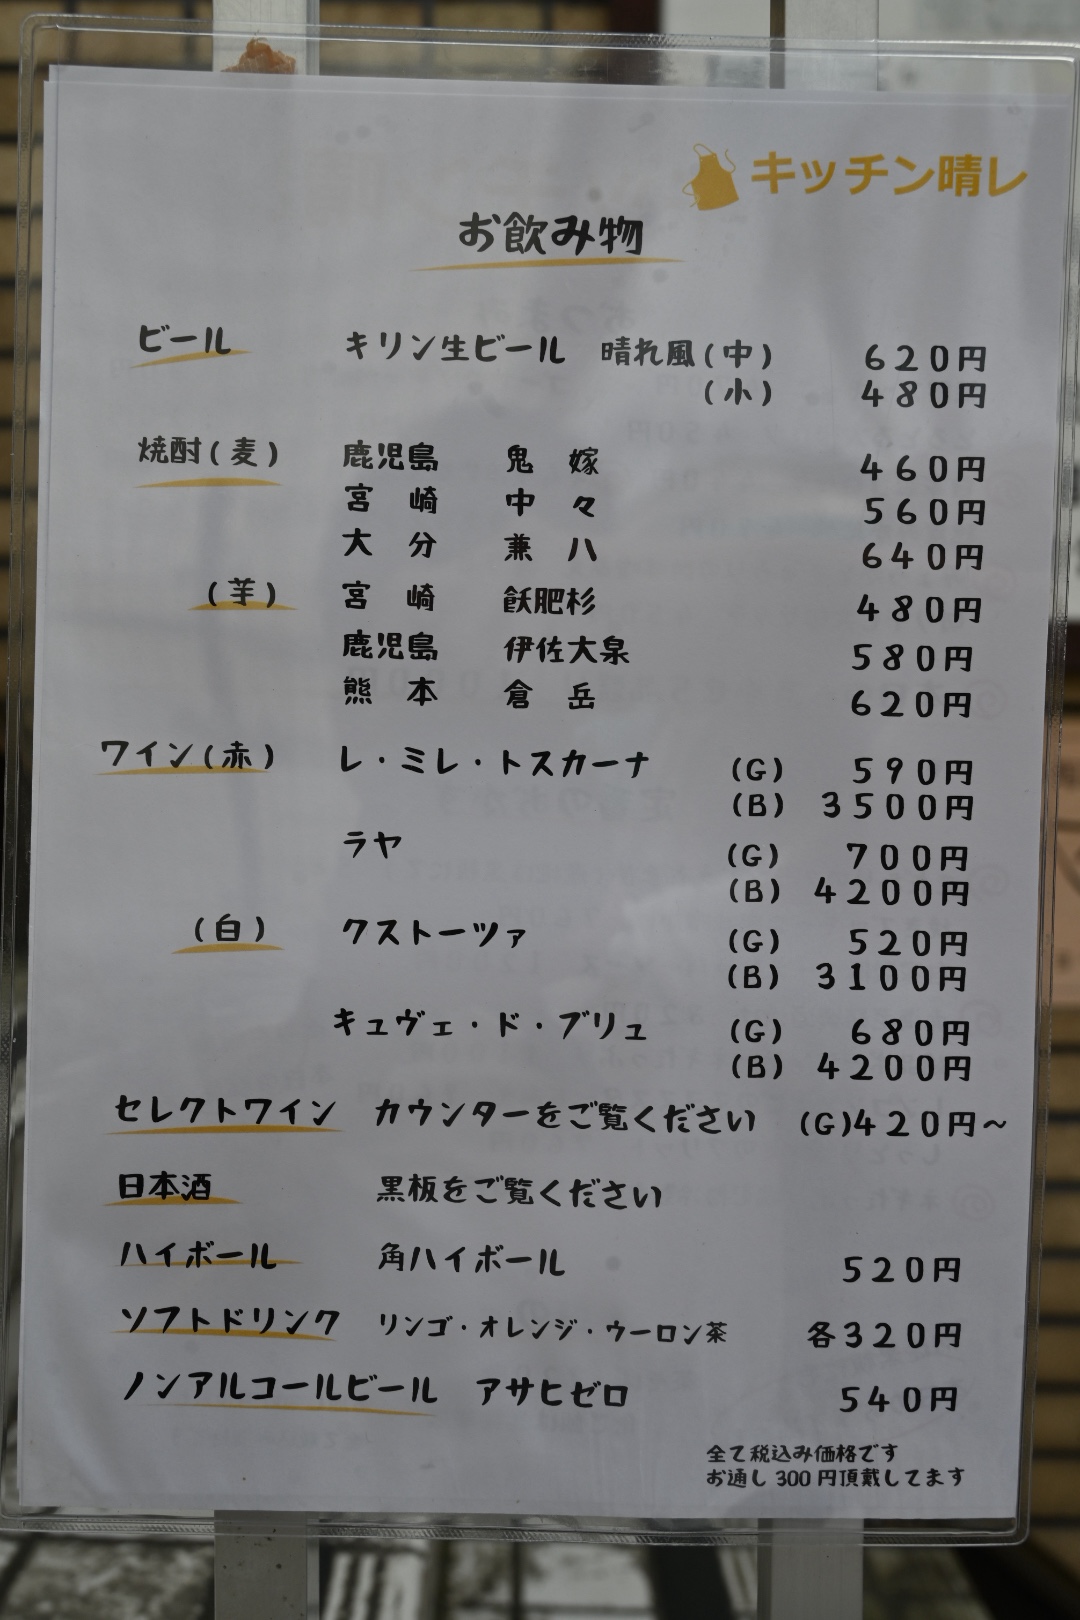 キッチン晴レ
お飲み物
ビール キリン生ビール 晴れ風(中) 620円
(小) 480円
焼酎(麦) 鹿児島 鬼嫁 460円
宮崎 中々 560円
大分 兼八 640円
(芋) 宮崎 飫肥杉 480円
鹿児島 伊佐大泉 580円
熊本 倉岳 620円
ワイン(赤) レ・ミレ・トスカーナ (G) 590円
(B) 3500円
ラヤ (G) 700円
(B) 4200円
(白) クストーツァ (G) 520円
(B) 3100円
キュヴェ・ド・ブリュ (G) 680円
(B) 4200円
セレクトワイン カウンターをご覧ください (G)420円～
日本酒 黒板をご覧ください
ハイボール 角ハイボール 520円
ソフトドリンク リンゴ・オレンジ・ウーロン茶 各320円
ノンアルコールビール アサヒゼロ 540円
全て税込み価格です
お通し300円頂戴してます